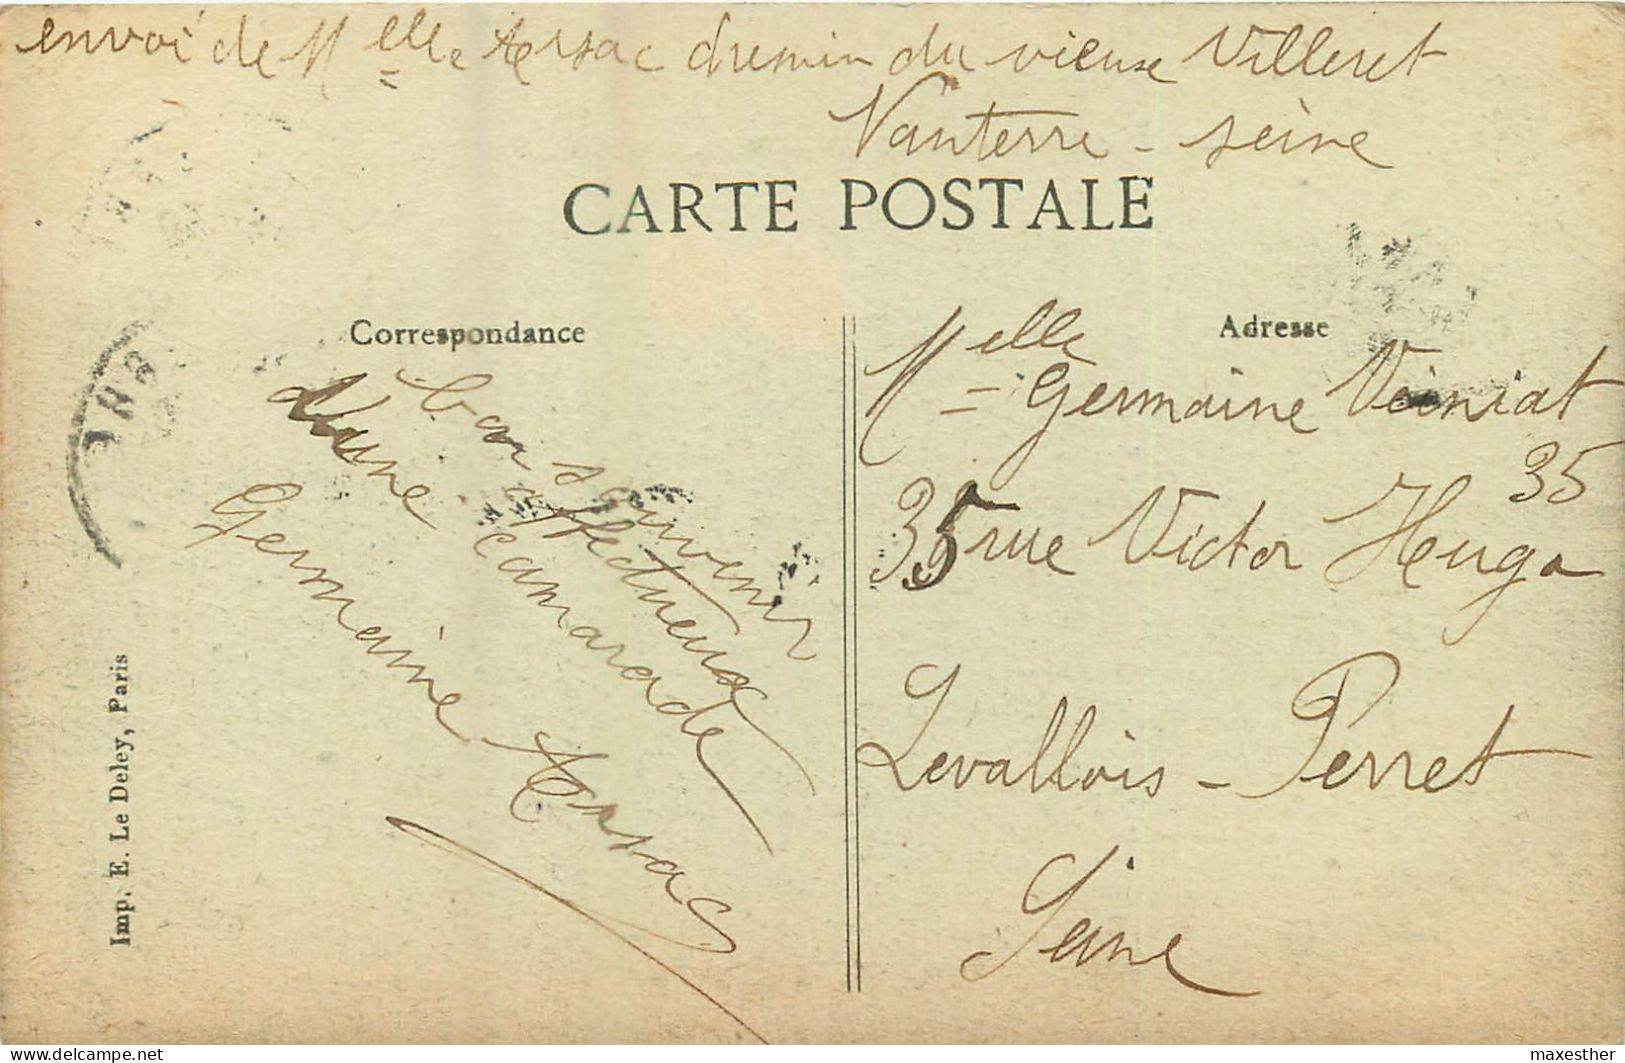 envoi de Melle Arsac chemin du vieux Villeret
Nanterre - seine
CARTE POSTALE
Correspondance
bon souvenir
affectueux
d'une camarade
Germaine Arsac
Imp. E. Le Deley, Paris
Adresse
Melle Germaine Veiniat
35
35 rue Victor Hugo
Levallois - Perret
Seine
Delcampe.net
maxesther